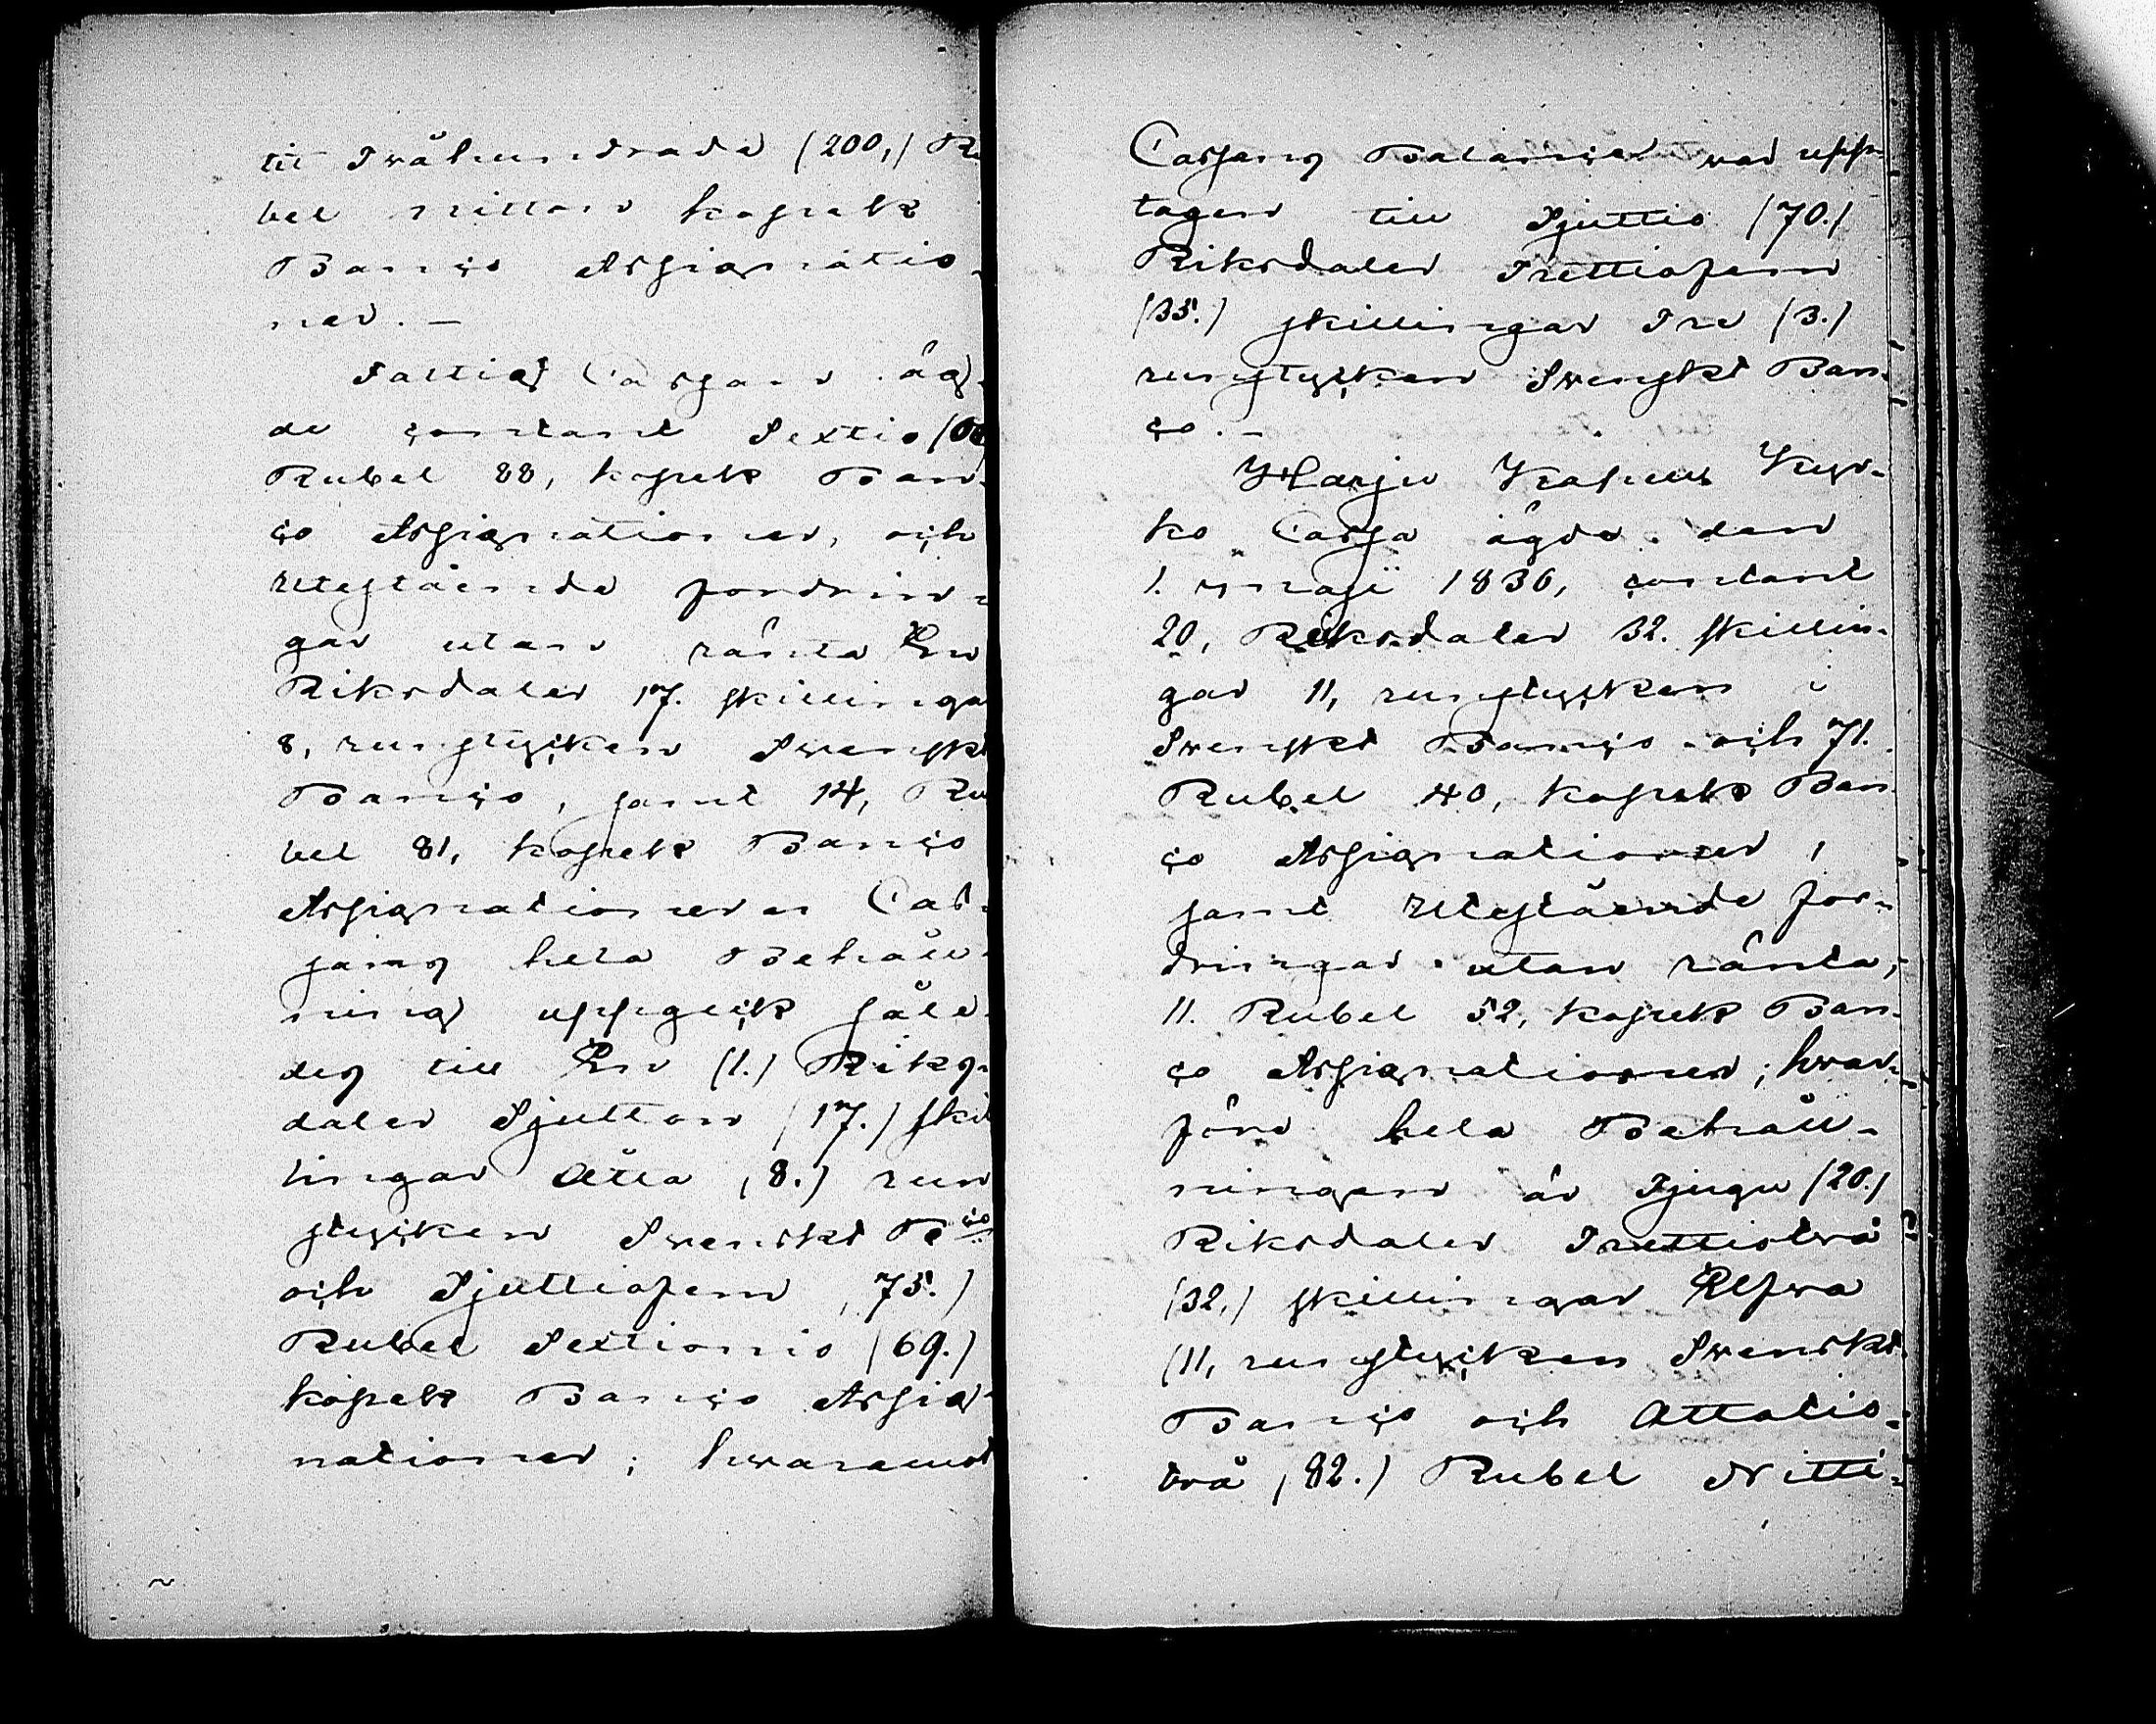 til Twåhundrade (200,) Ru
bel nitton kopek
Banco Assignatio-
ner. —
Fattig Cassan äg-
de contant Sextio (60
Rubel 88, kopek Ban-
co Assignationer, och
utestående fordrin-
gar utan ränta En
Riksdaler 17. skillinga
8, runstycken Svenskt
Banco, samt 14, Ru
bel 81, kopek Banco
Assignationer Cas-
sans hela Behåll-
ning uppgick såle-
des till En (1.) Riks-
daler Sjutton (17.) skil
lingar Åtta (8.) run
stycken Svenskt Bco
och Sjuttiofem (75.)
Rubel Sextionio (69.)
kopek Banco Assig-
nationer; hwaremot
Cassans Balancer war upp-
tagen till Sjuttio (70.)
Riksdaler Trettiofem
(35.) skillingar Tre (3.)
runstycken Swenskt Ban-
co. —
Harju Kapell Kyr-
ko Cassa ägde den
1. maji 1836, contant
20, Riksdaler 32. skillin-
gar 11, runstycken i
Swenskt Banco och 71.
Rubel 40, kopek Ban
co Assignationer,
samt utestående for-
dringar utan ränta,
11. Rubel 52, kopek Ban-
co Assignationer; hwar-
före hela Behåll-
ningen är Tjugu (20.)
Riksdaler Trettiotwå
(32,) skillingar Elfwa
(11, runstycken Swenskt
Banco och Åttatio-
twå (82.) Rubel Nitti-